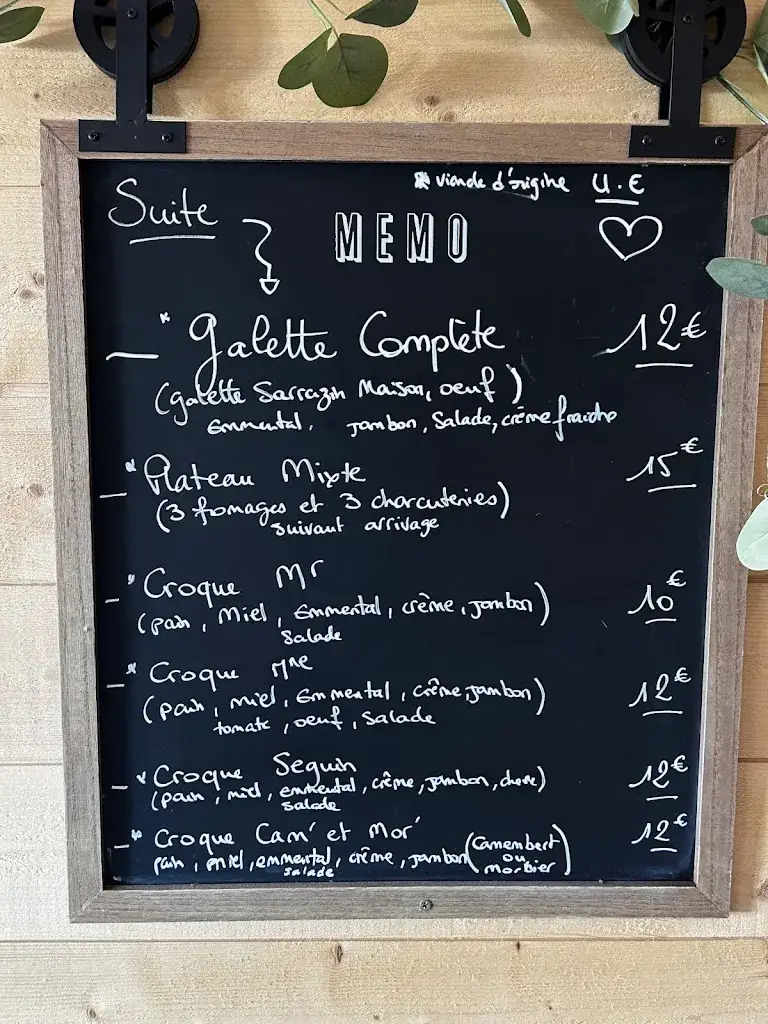 * viande d'origine U.E
Suite
MEMO
* galette Complète 12€
(galette Sarrazin Maison, oeuf)
Emmental, jambon, Salade, crème fraiche
* Plateau Mixte 15€
(3 fromages et 3 charcuteries)
suivant arrivage
* Croque Mr 10€
(pain, Miel, Emmental, crème, jambon)
Salade
* Croque Mme 12€
(pain, miel, Emmental, crème, jambon)
tomate, oeuf, salade
* Croque Seguin 12€
(pain, miel, emmental, crème, jambon, chèvre)
salade
* Croque Cam' et Mor' 12€
pain, miel, emmental, crème, jambon (Camembert
ou
salade
morbier)